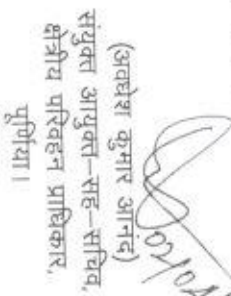 (अवधेश कुमार आनंद)
संयुक्त आयुक्त-सह-सचिव,
क्षेत्रीय परिवहन प्राधिकार,
पूर्णिया।